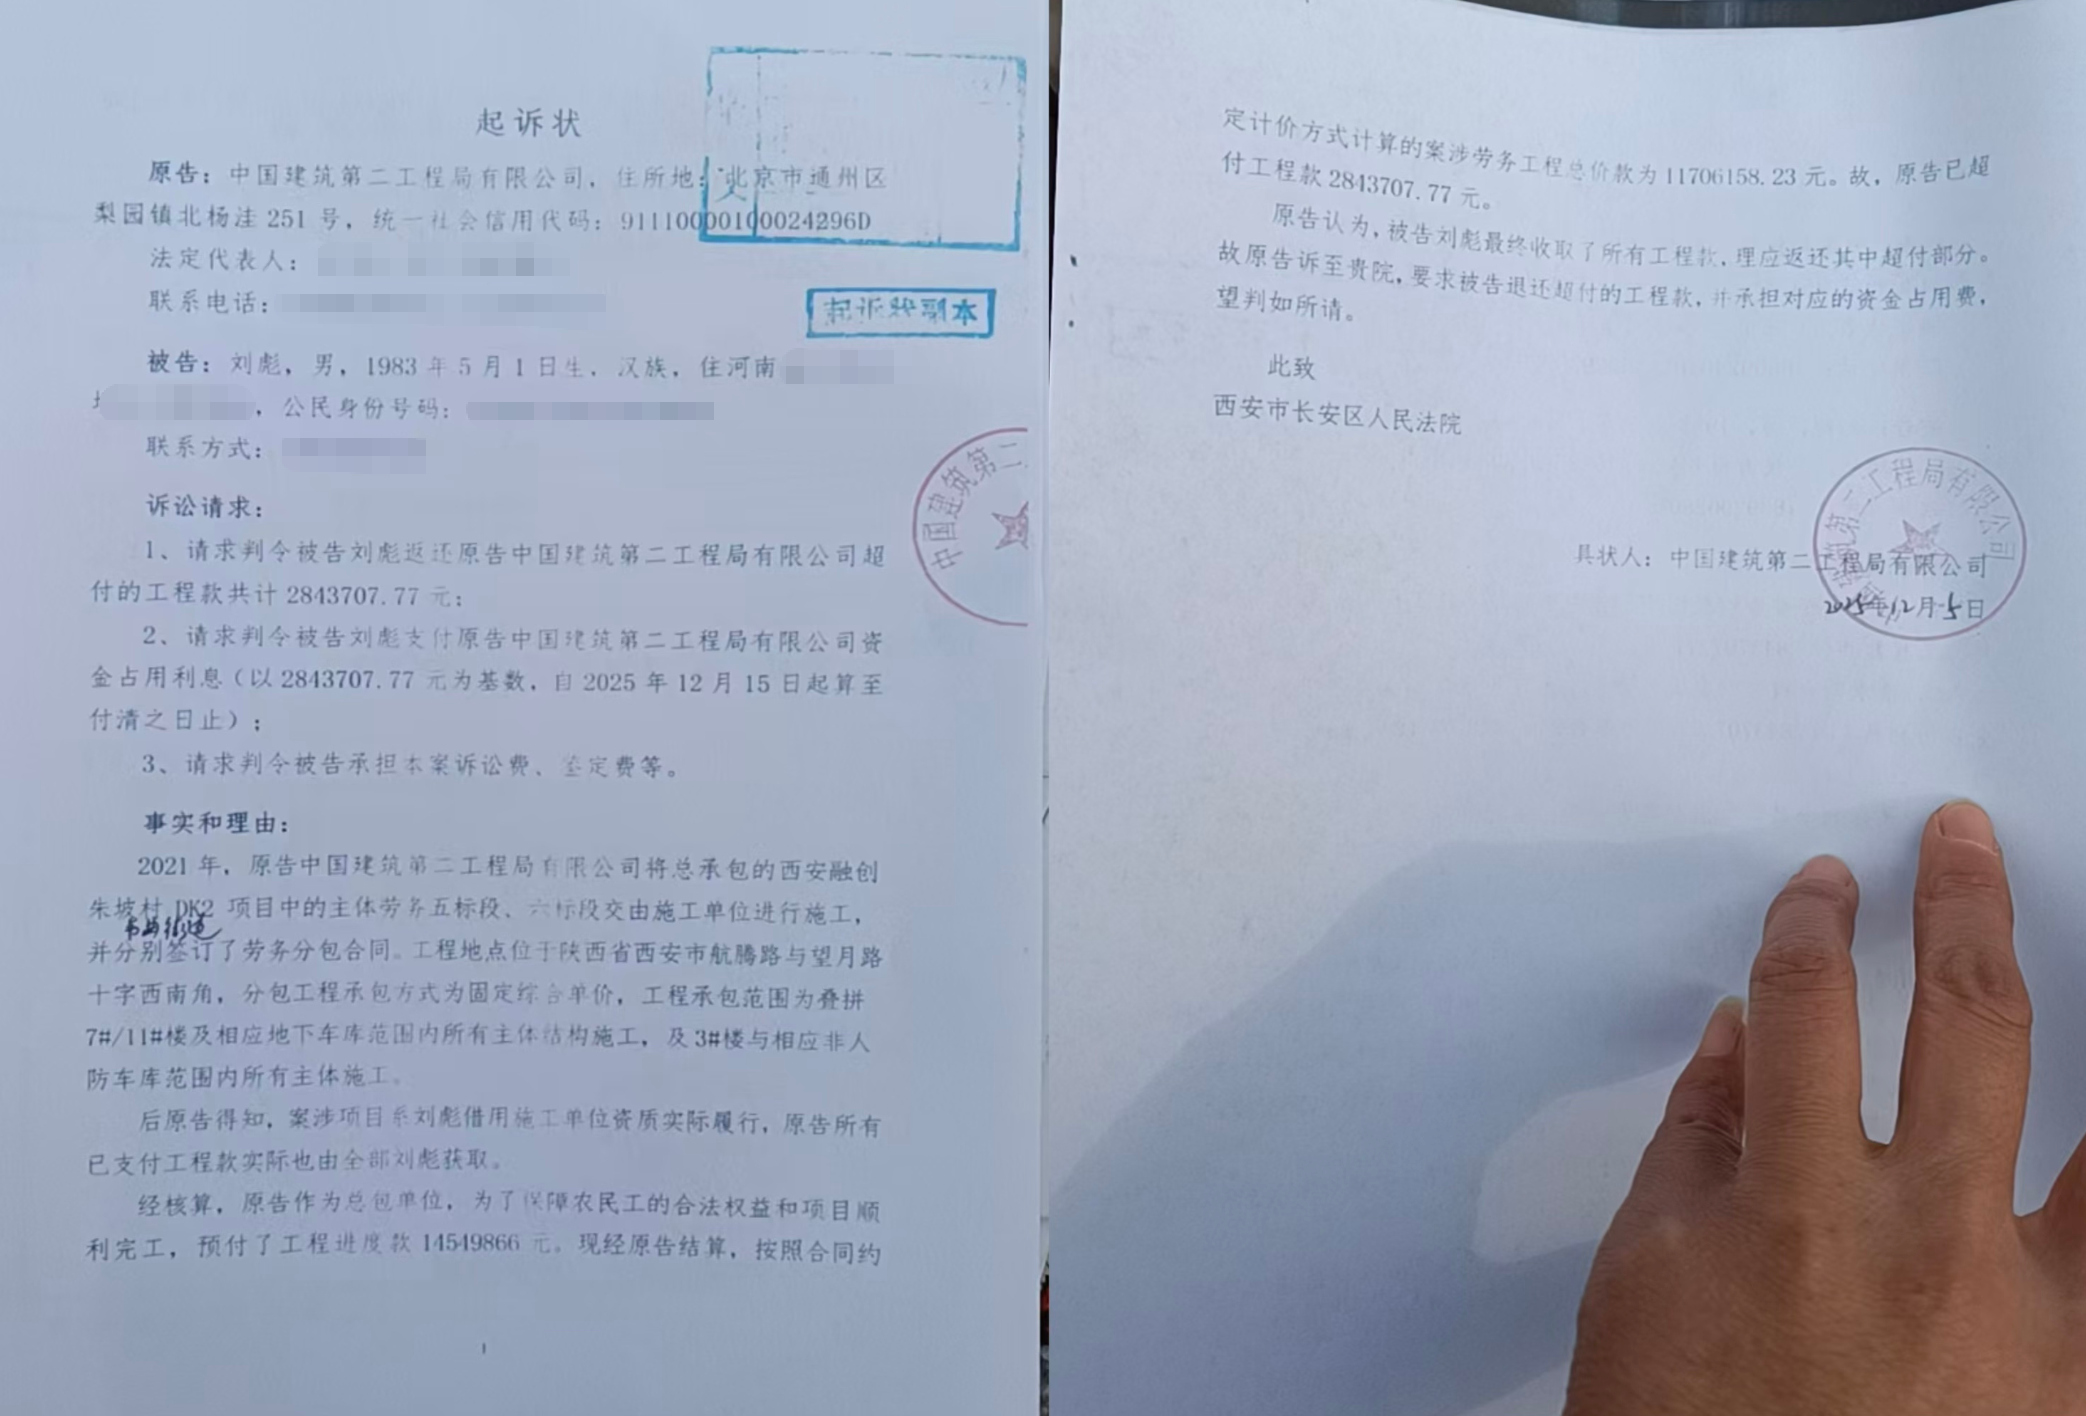 起诉状
原告：中国建筑第二工程局有限公司，住所地：北京市通州区
梨园镇北杨洼 251 号，统一社会信用代码：91110000100024296D
法定代表人：
联系电话：
起诉状副本
被告：刘彪，男，1983 年 5 月 1 日生，汉族，住河南
，公民身份号码：
联系方式：
中国建筑第二
诉讼请求：
1、请求判令被告刘彪返还原告中国建筑第二工程局有限公司超
付的工程款共计 2843707.77 元；
2、请求判令被告刘彪支付原告中国建筑第二工程局有限公司资
金占用利息（以 2843707.77 元为基数，自 2025 年 12 月 15 日起算至
付清之日止）；
3、请求判令被告承担本案诉讼费、鉴定费等。
事实和理由：
2021 年，原告中国建筑第二工程局有限公司将总承包的西安融创
朱坡村 DK2 项目中的主体劳务五标段、六标段交由施工单位进行施工，
并分别签订了劳务分包合同。工程地点位于陕西省西安市航腾路与望月路
十字西南角，分包工程承包方式为固定综合单价，工程承包范围为叠拼
7#/11#楼及相应地下车库范围内所有主体结构施工，及 3#楼与相应非人
防车库范围内所有主体施工。
后原告得知，案涉项目系刘彪借用施工单位资质实际履行，原告所有
已支付工程款实际也由全部刘彪获取。
经核算，原告作为总包单位，为了保障农民工的合法权益和项目顺
利完工，预付了工程进度款 14549866 元。现经原告结算，按照合同约
1
定计价方式计算的案涉劳务工程总价款为 11706158.23 元。故，原告已超
付工程款 2843707.77 元。
原告认为，被告刘彪最终收取了所有工程款，理应返还其中超付部分。
故原告诉至贵院，要求被告退还超付的工程款，并承担对应的资金占用费，
望判如所请。
此致
西安市长安区人民法院
第二工程局有限公司
具状人：中国建筑第二工程局有限公司
2025年12月5日